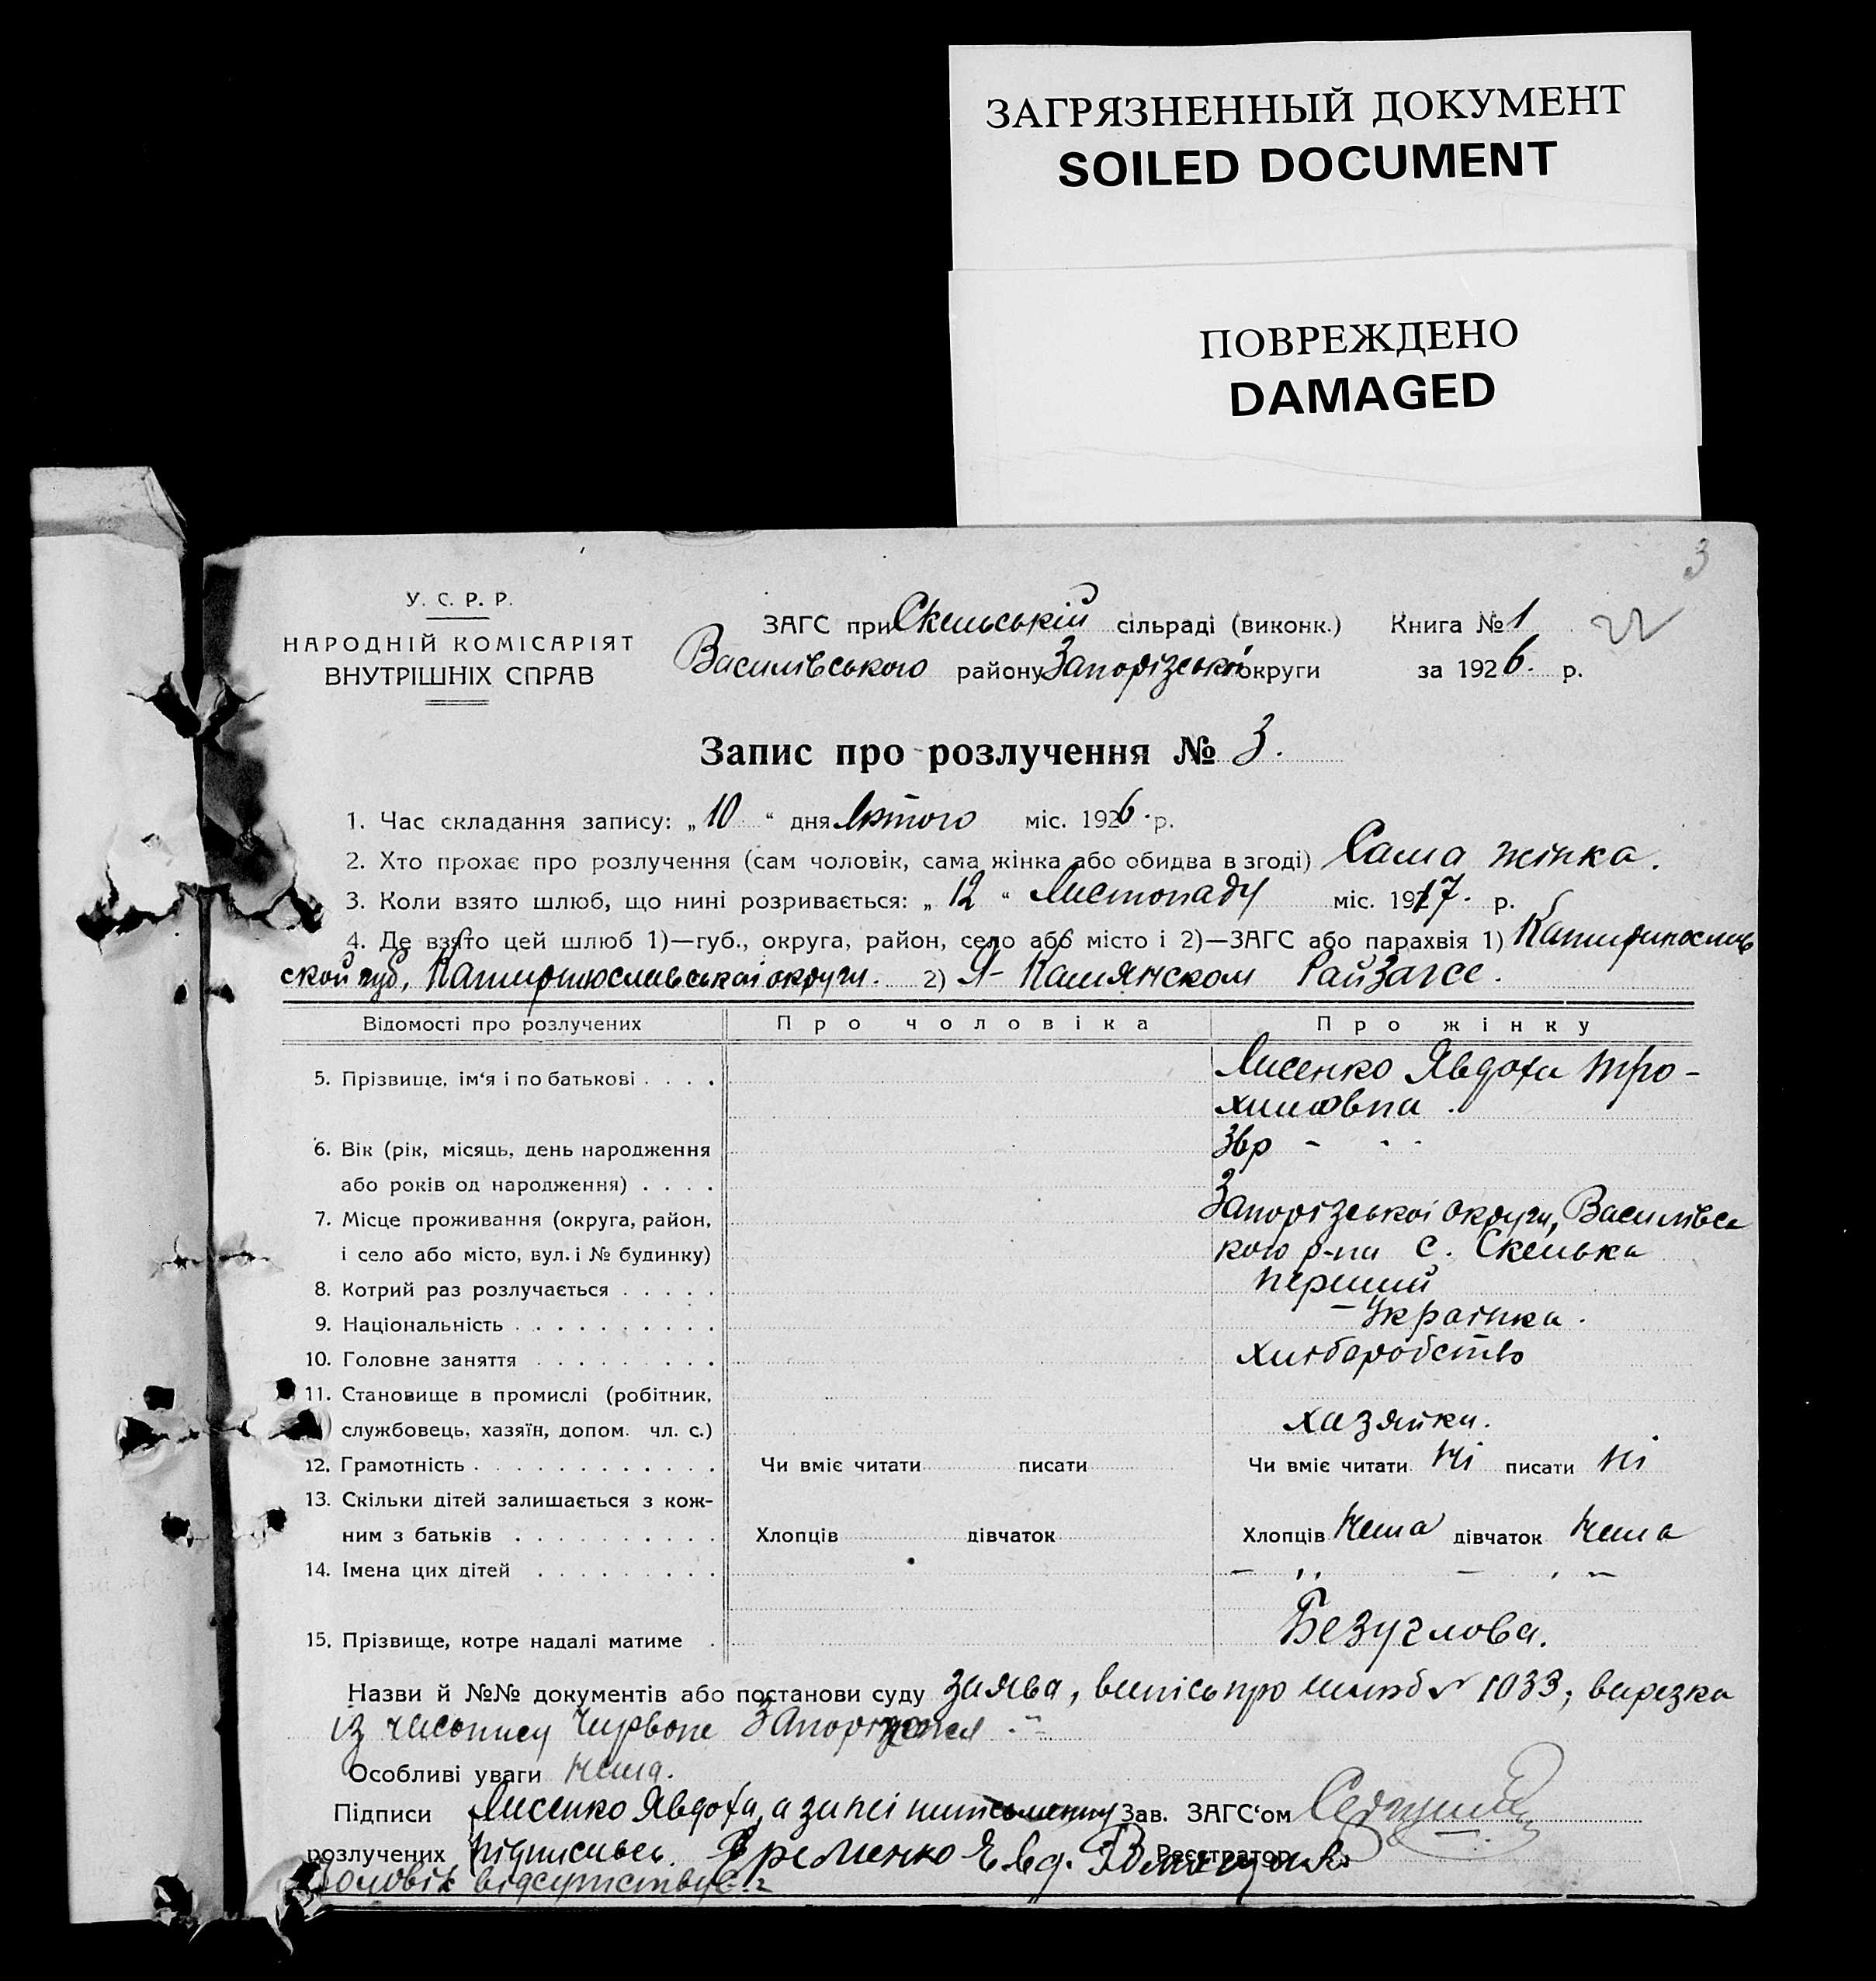 ЗАГРЯЗНЕННЫЙ ДОКУМЕНТ
SOILED DOCUMENT
ПОВРЕЖДЕНО
DAMAGED
3
У. С. Р. Р.
НАРОДНІЙ КОМІСАРІЯТ
ВНУТРІШНІХ СПРАВ
ЗАГС при Скельській сільраді (виконк.) Книга № 1
Василівського району Запорізької округи за 1926. р.
Запис про розлучення № 3.
1. Час складання запису: „10“ дня Лютого міс. 1926. р.
2. Хто прохає про розлучення (сам чоловік, сама жінка або обидва в згоді) Сама жінка.
3. Коли взято шлюб, що нині розривається: „12“ Листопаду міс. 1917. р.
4. Де взято цей шлюб 1)—губ., округа, район, село або місто і 2)—ЗАГС або парахвія 1) Катиринослав
ской губ, Катиринославськоі округи. 2) Камянском РайЗагсе.
Відомості про розлучених
Про чоловіка
Про жінку
5. Прізвище, ім'я і по батькові . . . . Лисенко Явдоха Тро-
химовна.
6. Вік (рік, місяць, день народження 36р
або років од народження) . . . .
7. Місце проживання (округа, район, Запорізськоі округи, Василівсь
і село або місто, вул. і № будинку) кого р-на с. Скелька
8. Котрий раз розлучається . . . . . перший
9. Національність . . . . . . . . . . – Украінка.
10. Головне заняття . . . . . . . . . хліборобство
11. Становище в промислі (робітник,
службовець, хазяїн, допом. чл. с.) хазяйка.
12. Грамотність . . . . . . . . . . . . Чи вміє читати писати Чи вміє читати Ні писати Ні
13. Скільки дітей залишається з кож-
ним з батьків . . . . . . . . . . Хлопців дівчаток Хлопців Нема дівчаток Нема
14. Імена цих дітей . . . . . . . . . – „ – „ –
15. Прізвище, котре надалі матиме . Безуглова.
Назви й №№ документів або постанови суду заява, випись про шлюб № 1033; вирезка
із часопису Червоне Запоріжжя
Особливі уваги Нема.
Підписи Лисенко Явдоха, а за неі Зав. ЗАГС'ом
розлучених підписавсь. Еременко Евд. Реєстратор
Чоловік відсутствує